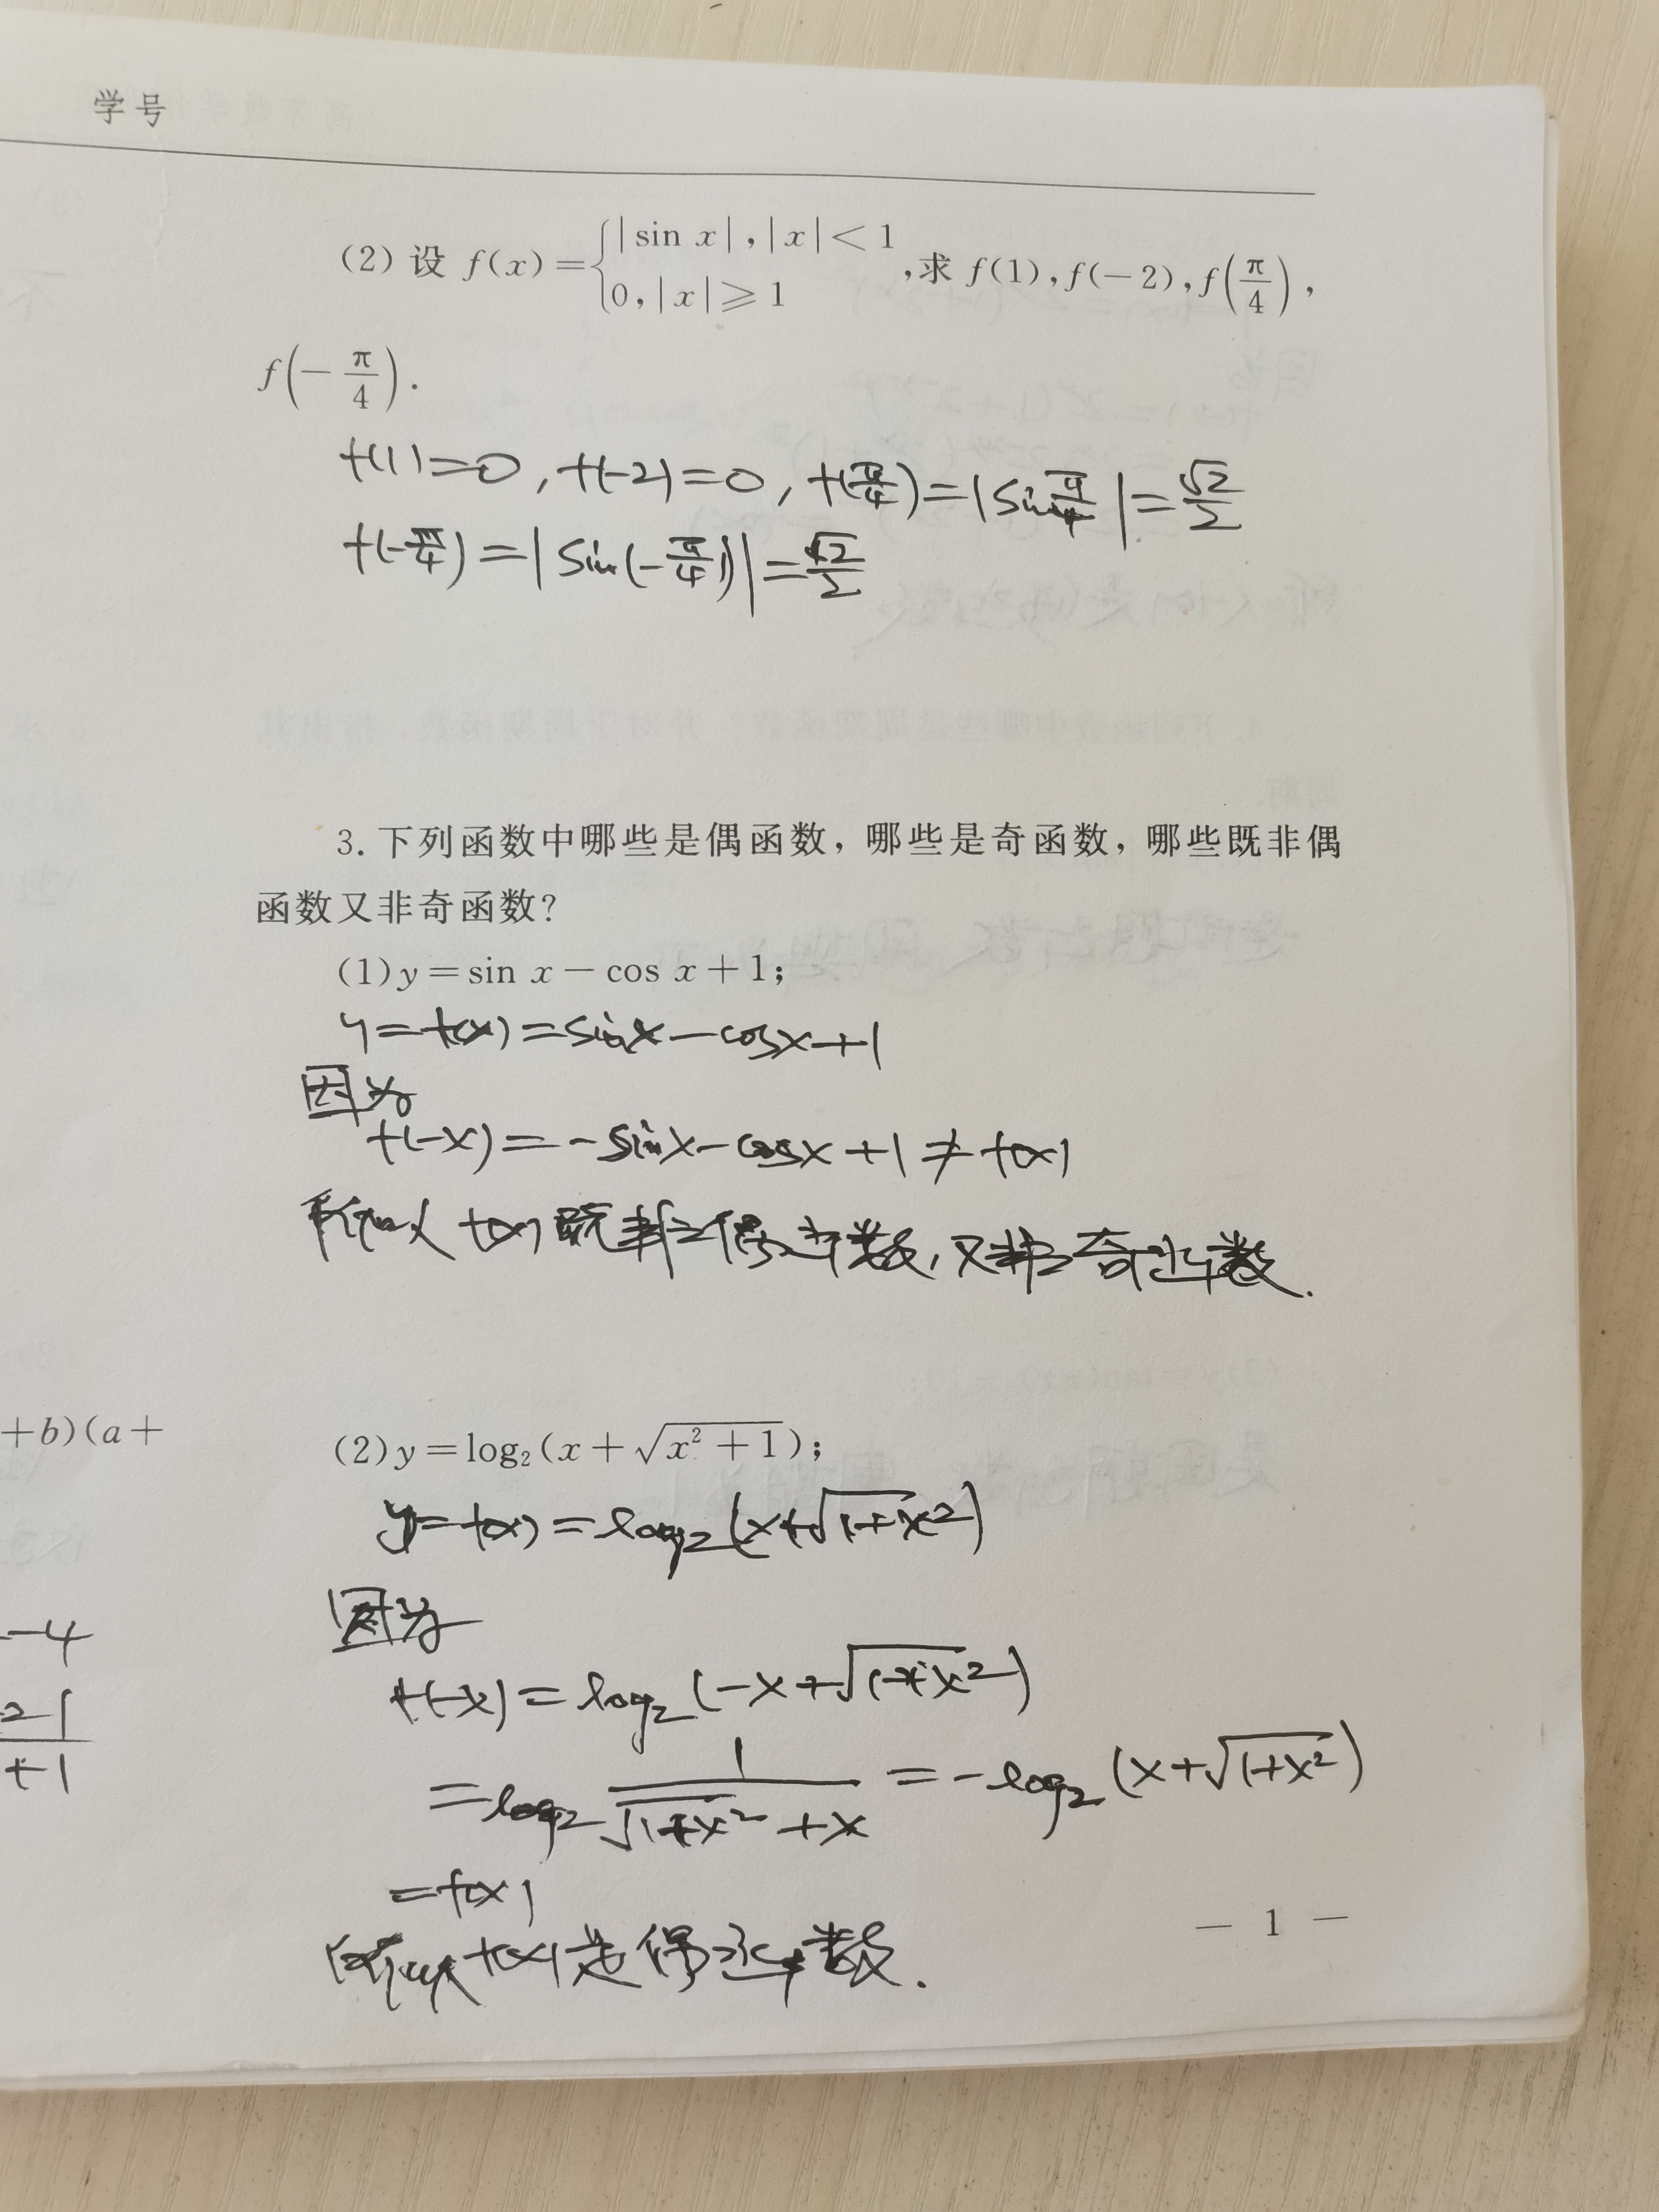 学号
(2) 设 f(x)={|sin x|,|x|<1
0,|x|≥1 ,求 f(1),f(-2),f(π/4),
f(-π/4).
f(1)=0,f(-2)=0,f(π/4)=|sin π/4|=√2/2
f(-π/4)=|sin(-π/4)|=√2/2
3. 下列函数中哪些是偶函数，哪些是奇函数，哪些既非偶
函数又非奇函数?
(1)y=sin x-cos x+1;
y=f(x)=sinx-cosx+1
因为
f(-x)=-sinx-cosx+1≠f(x)
所以 f(x)既非偶函数,又非奇函数.
(2)y=log₂(x+√(x²+1));
y=f(x)=log₂(x+√(1+x²))
因为
f(-x)=log₂(-x+√(1+x²))
=log₂ 1/(√(1+x²)+x)=-log₂(x+√(1+x²))
=f(x)
所以f(x)是偶函数.
— 1 —
+b)(a+
-4
21
+1